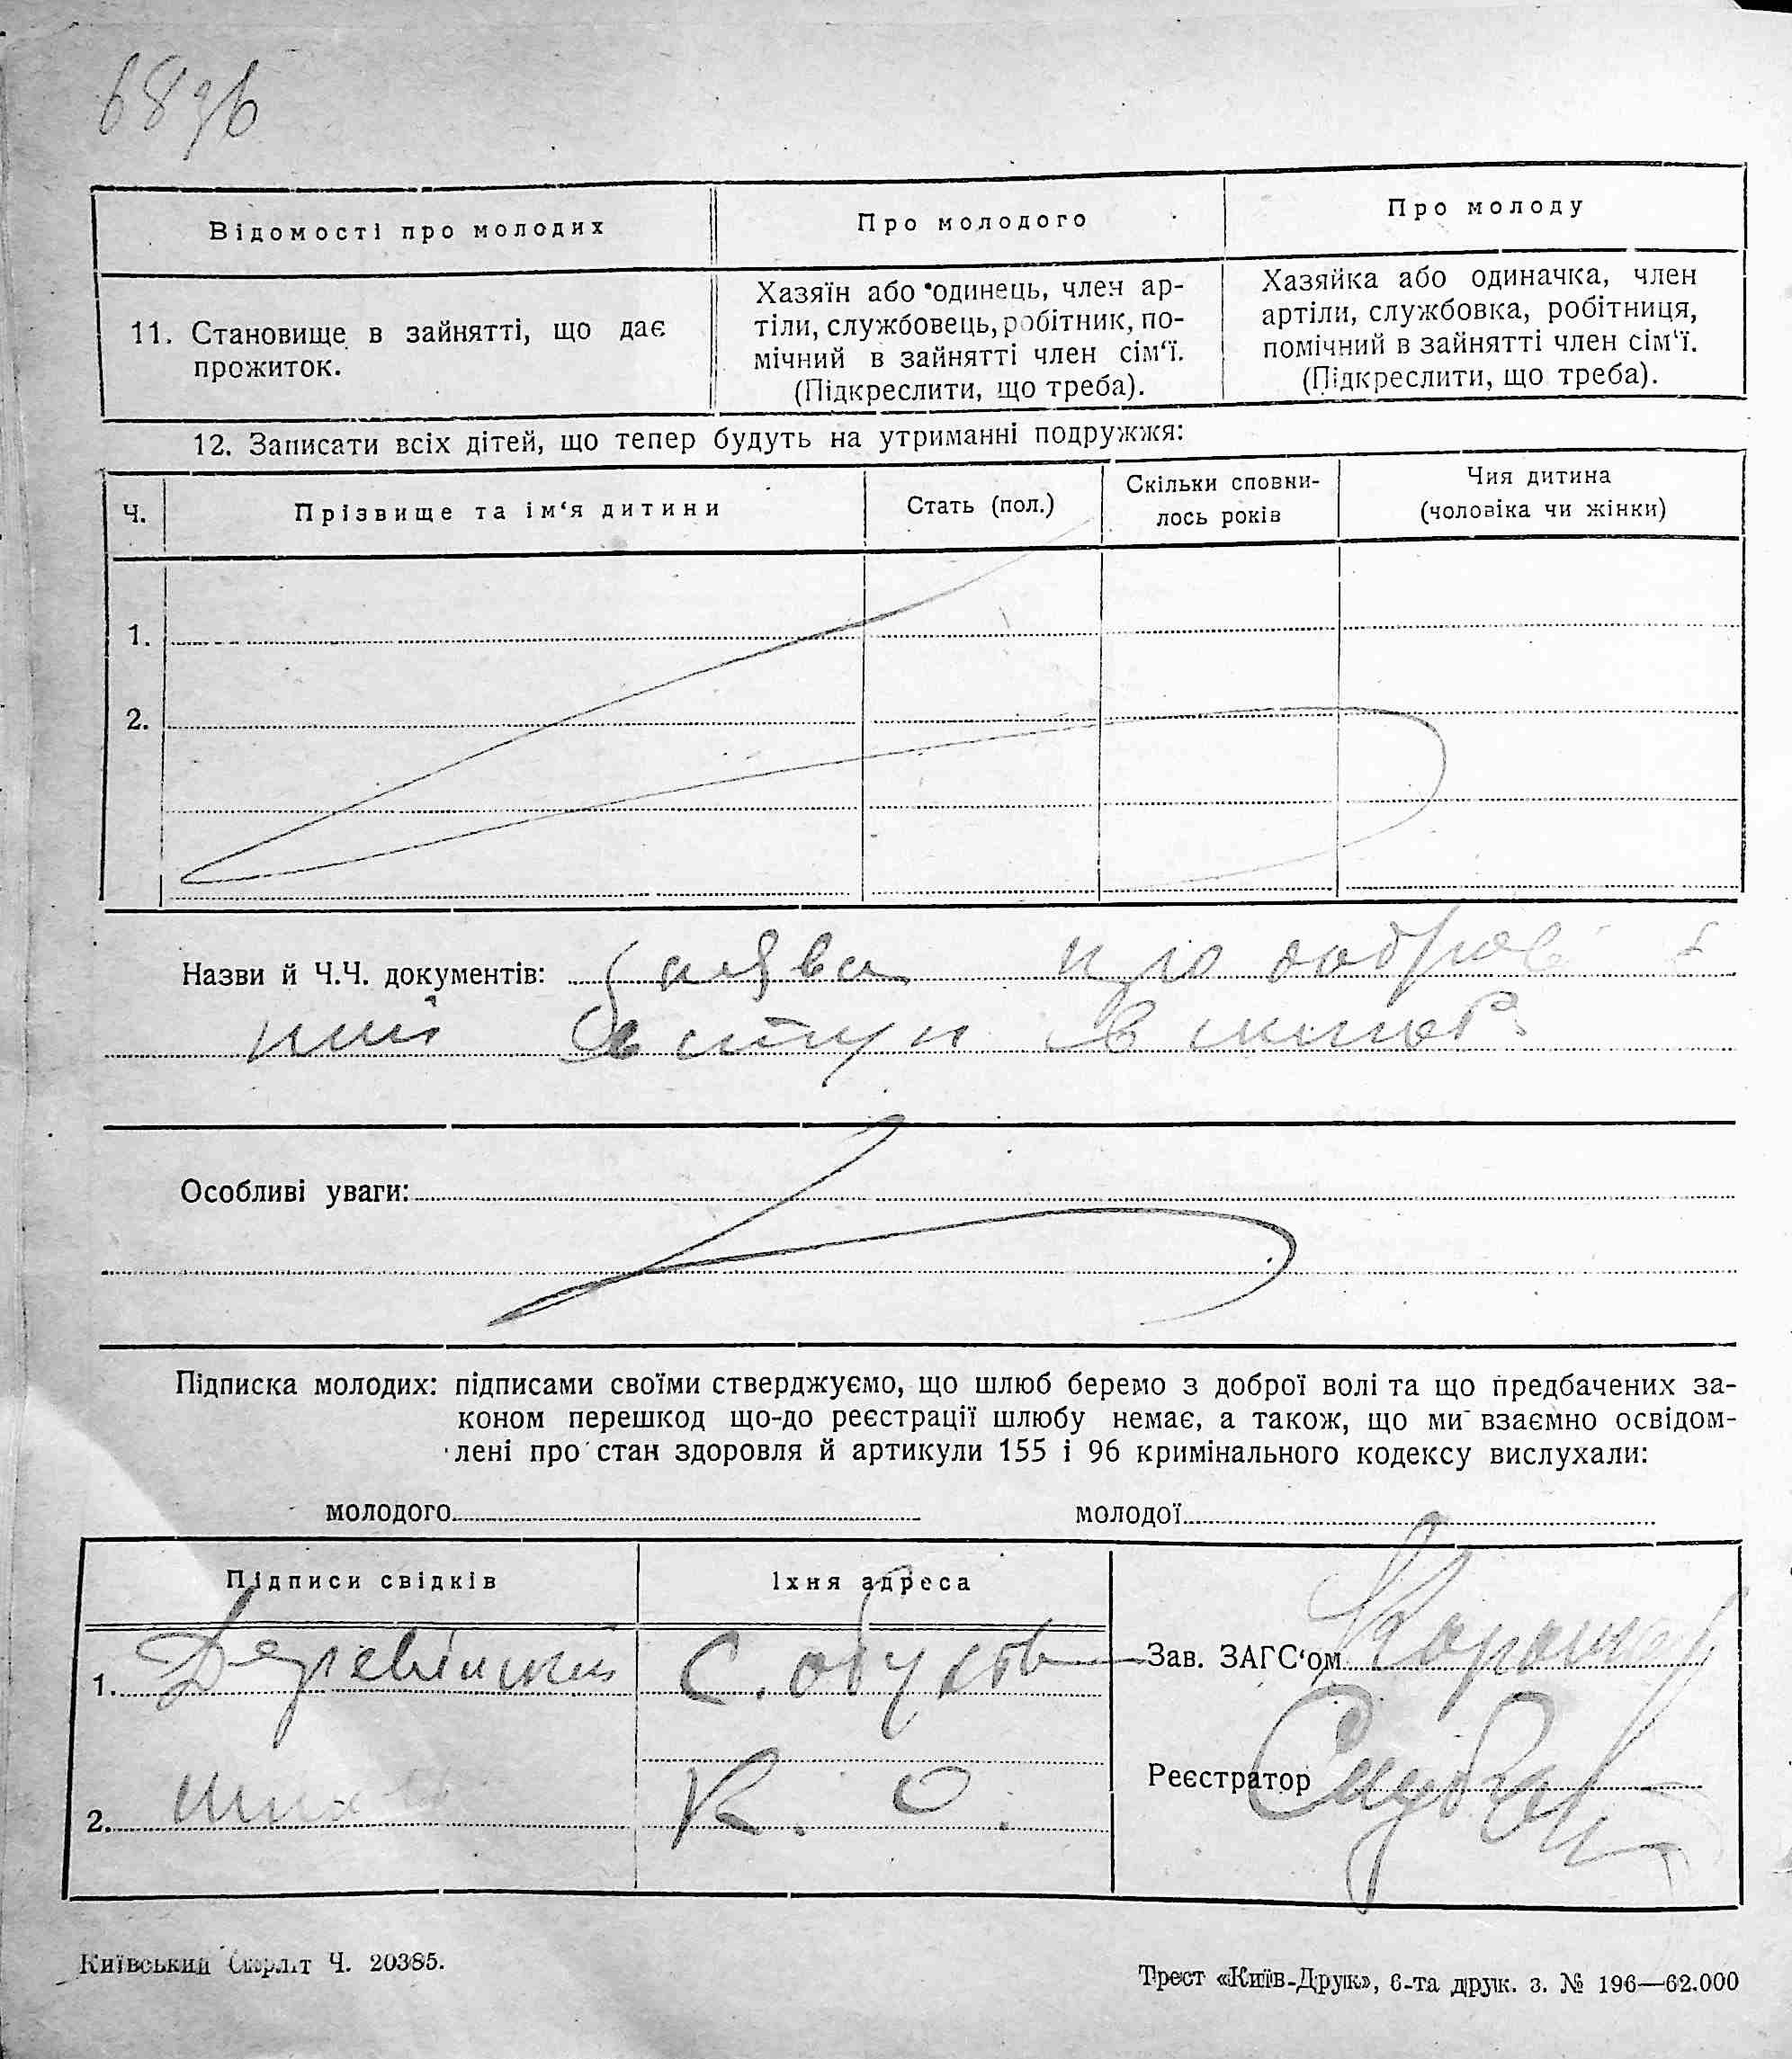 68 зв
Відомості про молодих
Про молодого
Про молоду
11. Становище в зайнятті, що дає
прожиток.
Хазяїн або одинець, член ар-
тіли, службовець, робітник, по-
мічний в зайнятті член сім‘ї.
(Підкреслити, що треба).
Хазяйка або одиначка, член
артіли, службовка, робітниця,
помічний в зайнятті член сім‘ї.
(Підкреслити, що треба).
12. Записати всіх дітей, що тепер будуть на утриманні подружжя:
Ч.
Прізвище та ім‘я дитини
Стать (пол.)
Скільки сповни-
лось років
Чия дитина
(чоловіка чи жінки)
1.
2.
Назви й Ч.Ч. документів: Заява про добров
ний вступ в
Особливі уваги:
Підписка молодих: підписами своїми стверджуємо, що шлюб беремо з доброї волі та що предбачених за-
коном перешкод що-до реєстрації шлюбу немає, а також, що ми взаємно освідом-
лені про стан здоровля й артикули 155 і 96 кримінального кодексу вислухали:
молодого
молодої
Підписи свідків
Їхня адреса
1.
с.
Зав. ЗАГС‘ом
Реєстратор
2.
Київський Окрліт Ч. 20385.
Трест «Київ-Друк», 6-та друк. з. № 196—62.000